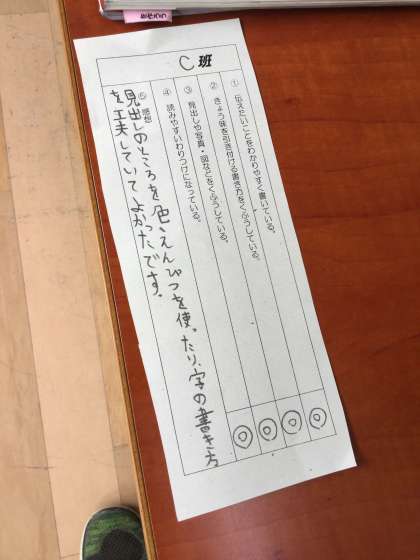 C班
① 伝えたいことをわかりやすく書いている。 ◎
② きょう味を引き付ける書き方をくふうしている。 ◎
③ 見出しや写真・図などをくふうしている。 ◎
④ 読みやすいわりつけになっている。 ◎
⑤ 感想
見出しのところを色えんぴつを使ったり、字の書き方
を工夫していてよかったです。